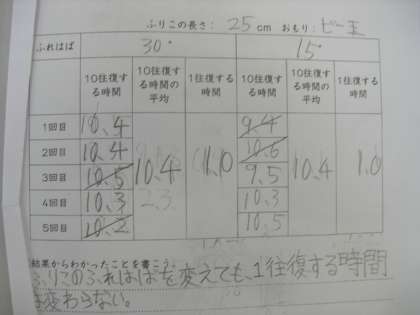 ふりこの長さ： 25 cm おもり：ビー玉
ふれはば 30° 15°
10往復する時間 10往復する時間の平均 1往復する時間 10往復する時間 10往復する時間の平均 1往復する時間
1回目 10.4 9.4
2回目 10.4 10.6
3回目 10.5 10.4 1.0 9.5 10.4 1.0
4回目 10.3 10.3
5回目 10.2 10.5
結果からわかったことを書こう。
ふりこのふれはばを変えても、1往復する時間
は変わらない。